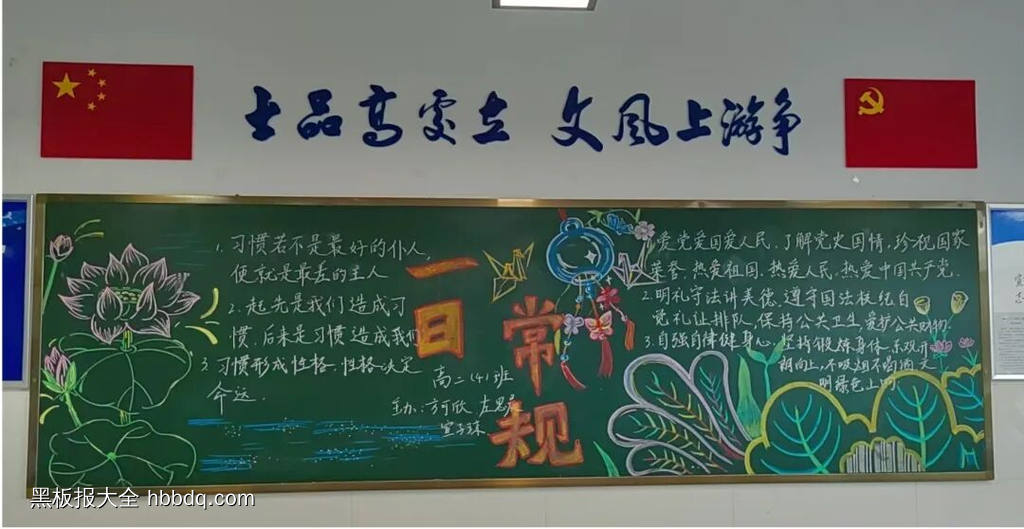 士品高处立 文风上游争
1. 习惯若不是最好的仆人,
便就是最差的主人
2. 起先是我们造成习
惯, 后来是习惯造成我们
3. 习惯形成性格, 性格决定
命运.
一日
常规
高二(4)班
主办:方可欣 左思
爱党爱国爱人民, 了解党史国情, 珍视国家
荣誉, 热爱祖国, 热爱人民, 热爱中国共产党.
2. 明礼守法讲美德, 遵守国法校纪自
觉礼让排队, 保持公共卫生, 爱护公共财物.
3. 自强自律健身心, 坚持锻炼身体, 乐观开
朗向上, 不吸烟不喝酒, 文
明绿色上网
黑板报大全 hbbdq.com